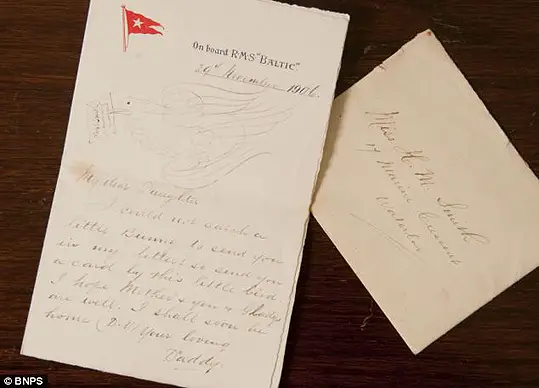 On board R·M·S "BALTIC"
29th November 1906.
My dear Daughter
I could not catch a
little Bunnie to send you
in my letter so send you
a card by this little bird
I hope Mother & you & Gladys
are well. I shall soon be
home (D.V.) Your loving
Daddy.
Miss H. M. Smith
17 Marine Crescent
Waterloo
© BNPS